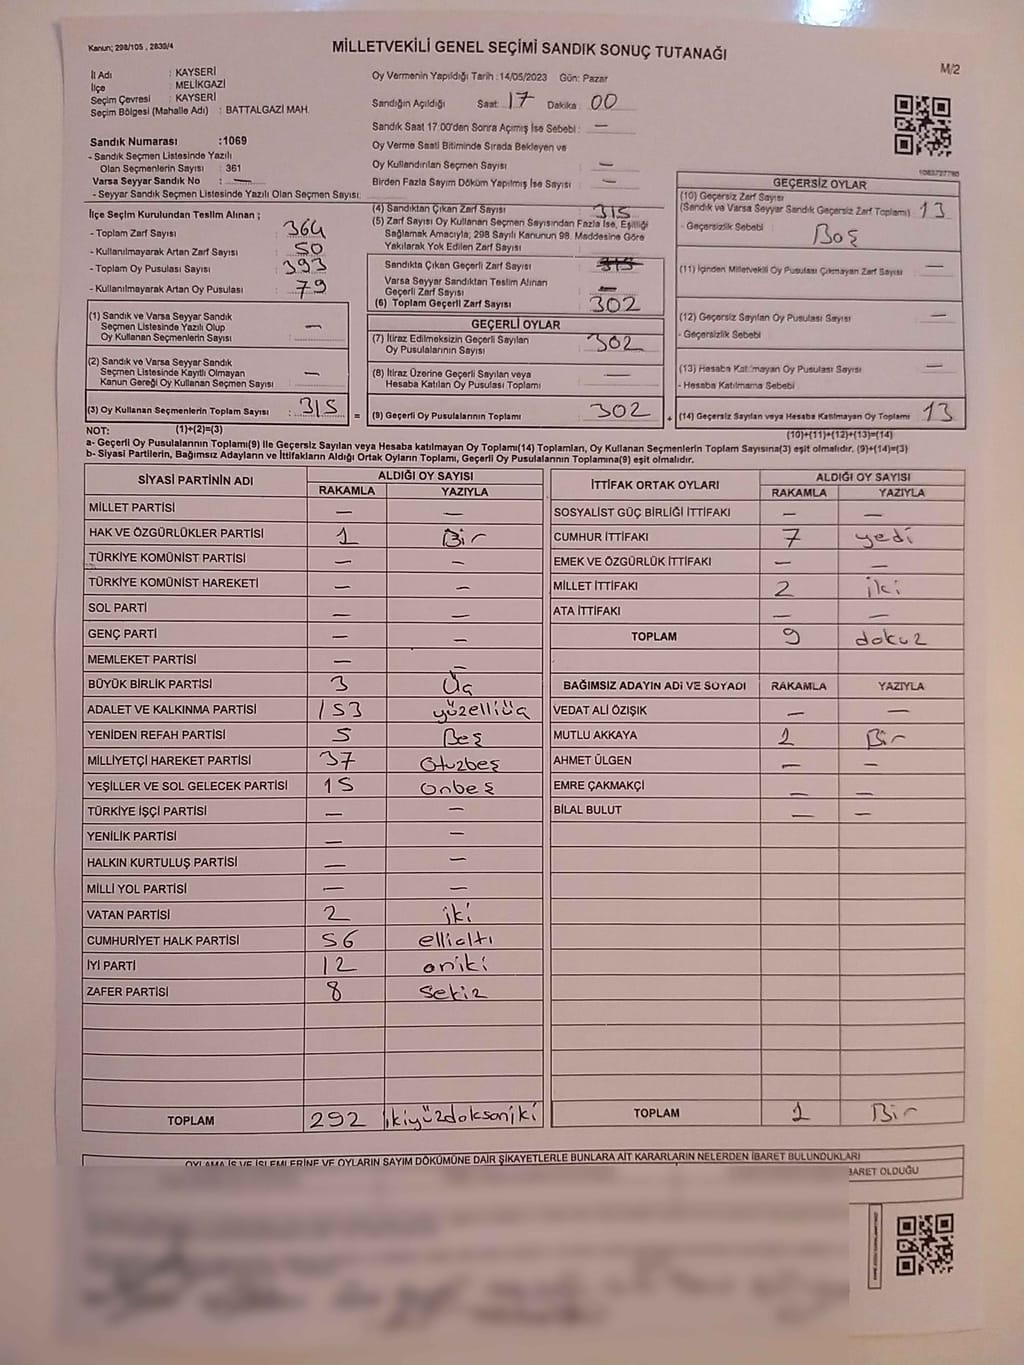 Kanun; 298/105 , 2839/4
MİLLETVEKİLİ GENEL SEÇİMİ SANDIK SONUÇ TUTANAĞI
M/2
İl Adı : KAYSERİ
İlçe : MELİKGAZİ
Seçim Çevresi : KAYSERİ
Seçim Bölgesi (Mahalle Adı) : BATTALGAZİ MAH.
Oy Vermenin Yapıldığı Tarih :14/05/2023 Gün: Pazar
Sandığın Açıldığı Saat: 17 Dakika : 00
Sandık Saat 17.00'den Sonra Açımış İse Sebebi : —
Oy Verme Saati Bitiminde Sırada Bekleyen ve
Oy Kullandırılan Seçmen Sayısı —
Birden Fazla Sayım Döküm Yapılmış İse Sayısı : —
Sandık Numarası :1069
- Sandık Seçmen Listesinde Yazılı
Olan Seçmenlerin Sayısı : 361
Varsa Seyyar Sandık No : —
- Seyyar Sandık Seçmen Listesinde Yazılı Olan Seçmen Sayısı:
İlçe Seçim Kurulundan Teslim Alınan ;
- Toplam Zarf Sayısı : 364
- Kullanılmayarak Artan Zarf Sayısı : 50
- Toplam Oy Pusulası Sayısı : 393
- Kullanılmayarak Artan Oy Pusulası : 79
(1) Sandık ve Varsa Seyyar Sandık
Seçmen Listesinde Yazılı Olup
Oy Kullanan Seçmenlerin Sayısı : —
(2) Sandık ve Varsa Seyyar Sandık
Seçmen Listesinde Kayıtlı Olmayan
Kanun Gereği Oy Kullanan Seçmen Sayısı : —
(3) Oy Kullanan Seçmenlerin Toplam Sayısı : 315 =
(1)+(2)=(3)
(4) Sandıktan Çıkan Zarf Sayısı : 315
(5) Zarf Sayısı Oy Kullanan Seçmen Sayısından Fazla İse, Eşitliği
Sağlamak Amacıyla; 298 Sayılı Kanunun 98. Maddesine Göre
Yakılarak Yok Edilen Zarf Sayısı
Sandıkta Çıkan Geçerli Zarf Sayısı : 315
Varsa Seyyar Sandıktan Teslim Alınan
Geçerli Zarf Sayısı : —
(6) Toplam Geçerli Zarf Sayısı : 302
GEÇERLİ OYLAR
(7) İtiraz Edilmeksizin Geçerli Sayılan
Oy Pusulalarının Sayısı : 302
(8) İtiraz Üzerine Geçerli Sayılan veya
Hesaba Katılan Oy Pusulası Toplamı : —
(9) Geçerli Oy Pusulalarının Toplamı : 302 +
1083727780
GEÇERSİZ OYLAR
(10) Geçersiz Zarf Sayısı
(Sandık ve Varsa Seyyar Sandık Geçersiz Zarf Toplamı) : 13
- Geçersizlik Sebebi : Boş
(11) İçinden Milletvekili Oy Pusulası Çıkmayan Zarf Sayısı : —
(12) Geçersiz Sayılan Oy Pusulası Sayısı : —
- Geçersizlik Sebebi :
(13) Hesaba Katılmayan Oy Pusulası Sayısı : —
- Hesaba Katılmama Sebebi :
(14) Geçersiz Sayılan veya Hesaba Katılmayan Oy Toplamı : 13
(10)+(11)+(12)+(13)=(14)
NOT:
a- Geçerli Oy Pusulalarının Toplamı(9) İle Geçersiz Sayılan veya Hesaba katılmayan Oy Toplamı(14) Toplamları, Oy Kullanan Seçmenlerin Toplam Sayısına(3) eşit olmalıdır. (9)+(14)=(3)
b- Siyasi Partilerin, Bağımsız Adayların ve İttifakların Aldığı Ortak Oyların Toplamı, Geçerli Oy Pusulalarının Toplamına(9) eşit olmalıdır.
SİYASİ PARTİNİN ADI ALDIĞI OY SAYISI
RAKAMLA YAZIYLA
MİLLET PARTİSİ — —
HAK VE ÖZGÜRLÜKLER PARTİSİ 1 Bir
TÜRKİYE KOMÜNİST PARTİSİ — —
TÜRKİYE KOMÜNİST HAREKETİ — —
SOL PARTİ — —
GENÇ PARTİ — —
MEMLEKET PARTİSİ — —
BÜYÜK BİRLİK PARTİSİ 3 Üç
ADALET VE KALKINMA PARTİSİ 153 yüzelliüç
YENİDEN REFAH PARTİSİ 5 Beş
MİLLİYETÇİ HAREKET PARTİSİ 37 Otuzbeş
YEŞİLLER VE SOL GELECEK PARTİSİ 15 onbeş
TÜRKİYE İŞÇİ PARTİSİ — —
YENİLİK PARTİSİ — —
HALKIN KURTULUŞ PARTİSİ — —
MİLLİ YOL PARTİSİ — —
VATAN PARTİSİ 2 iki
CUMHURİYET HALK PARTİSİ 56 ellialtı
İYİ PARTİ 12 oniki
ZAFER PARTİSİ 8 Sekiz
TOPLAM 292 ikiyüzdoksaniki
İTTİFAK ORTAK OYLARI ALDIĞI OY SAYISI
RAKAMLA YAZIYLA
SOSYALİST GÜÇ BİRLİĞİ İTTİFAKI — —
CUMHUR İTTİFAKI 7 yedi
EMEK VE ÖZGÜRLÜK İTTİFAKI — —
MİLLET İTTİFAKI 2 iki
ATA İTTİFAKI — —
TOPLAM 9 dokuz
BAĞIMSIZ ADAYIN ADI VE SOYADI RAKAMLA YAZIYLA
VEDAT ALİ ÖZIŞIK — —
MUTLU AKKAYA 1 Bir
AHMET ÜLGEN — —
EMRE ÇAKMAKÇİ — —
BİLAL BULUT — —
TOPLAM 1 Bir
OYLAMA İŞ VE İŞLEMLERİNE VE OYLARIN SAYIM DÖKÜMÜNE DAİR ŞİKAYETLERLE BUNLARA AİT KARARLARIN NELERDEN İBARET BULUNDUKLARI
İBARET OLDUĞU